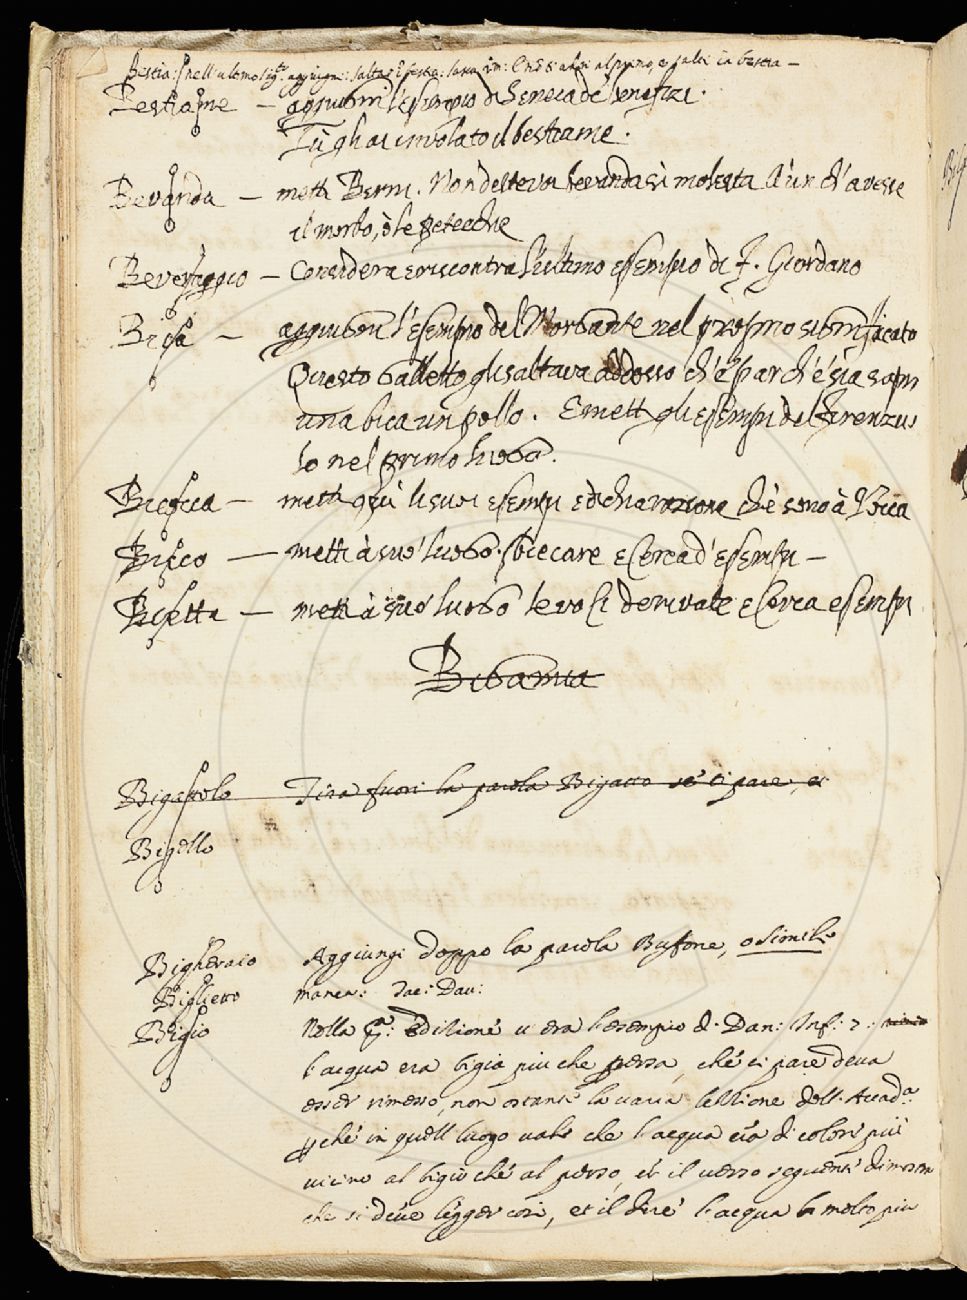 Bestia: nell ultimo aggiugni: saltar
Bestiame — aggiugni l'esempio di Seneca de benefizi.
Tù gli ai involato il bestiame.
Bevanda — metti Berni. Non deste voi bevanda si molesta A un ch'avesse
il morbo, ò le petecchie
Beveraggio — Considera e riscontra l'ultimo esempio di F. Giordano
Bica — aggiugni l'esempio del Morgante nel prossimo significato
Questo galletto gli saltava addosso ch'e' par ch'e' sia sopra
una bica un pollo. E metti gli esempi del Firenzuo
lo nel primo luogo.
Bicocca — metti quì li suoi esempi e dichiarazione che sono à Rocca
Bieco — metti à suo luogo. sbiecare e cerca d'esempi —
Bietta — metti à suo luogo le voci derivate e cerca esempi
Bigamia
Bigattolo Tira fuori la parola Bigatto se ti pare, et
Bigello
Bigheraio Aggiungi doppo la parola Buffone, o simile
Biglietto manca: Dav:
Bigio Nella edizione u era l'esempio di Dan: Inf: 7.
l'acqua era bigia più che persa, che ci pare deva
esser rimesso, non ostante la varia lettione dell. Accad.ª
pche in quell luogo vale che l'acqua era di colore più
vicino al bigio che al perso, et il verso seguente dimostra
che si deve legger così, et il dire l'acqua molto piu